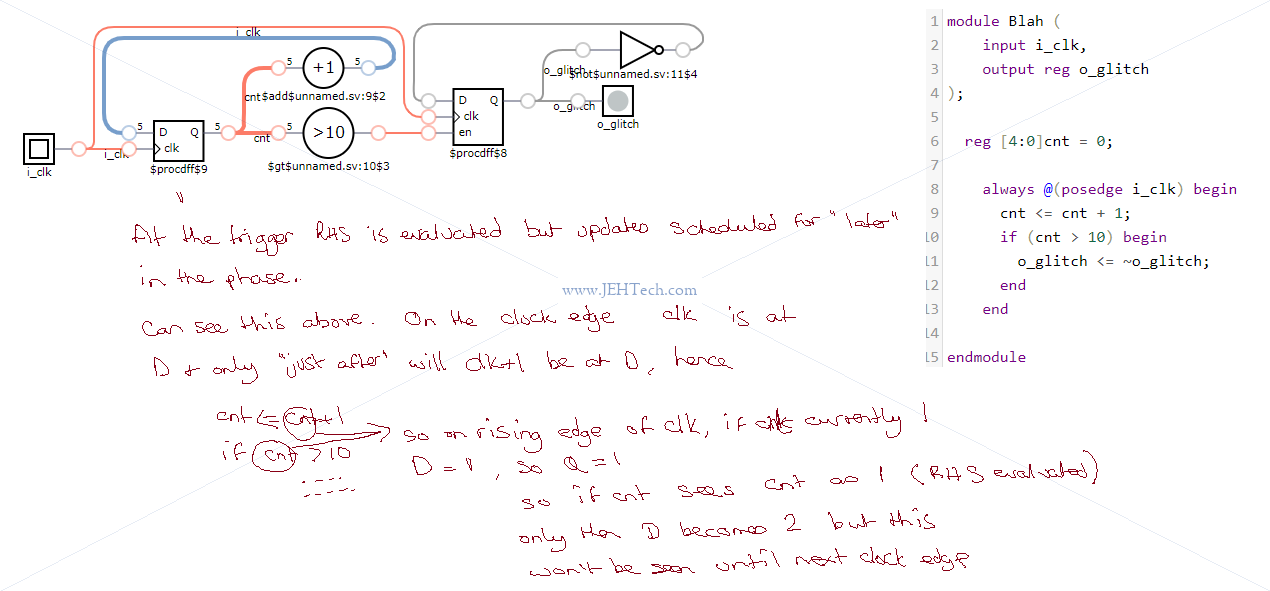 i_clk
5
+1
5
cnt$add$unnamed.sv:9$2
o_glitch
$not$unnamed.sv:11$4
D Q
clk
en
$procdff$8
o_glitch
o_glitch
5
D Q
clk
$procdff$9
5
cnt
5
>10
$gt$unnamed.sv:10$3
i_clk
i_clk
1 module Blah (
2 input i_clk,
3 output reg o_glitch
4 );
5
6 reg [4:0]cnt = 0;
7
8 always @(posedge i_clk) begin
9 cnt <= cnt + 1;
10 if (cnt > 10) begin
11 o_glitch <= ~o_glitch;
12 end
13 end
14
15 endmodule
At the trigger RHS is evaluated but updates scheduled for "later"
in the phase.
www.JEHTech.com
Can see this above. On the clock edge clk is at
D + only "just after" will clk+1 be at D, hence
cnt <= cnt+1
if cnt > 10
so on rising edge of clk, if clk currently 1
D = 1, so Q = 1
so if cnt sees cnt as 1 (RHS evaluated)
only then D becomes 2 but this
won't be seen until next clock edge